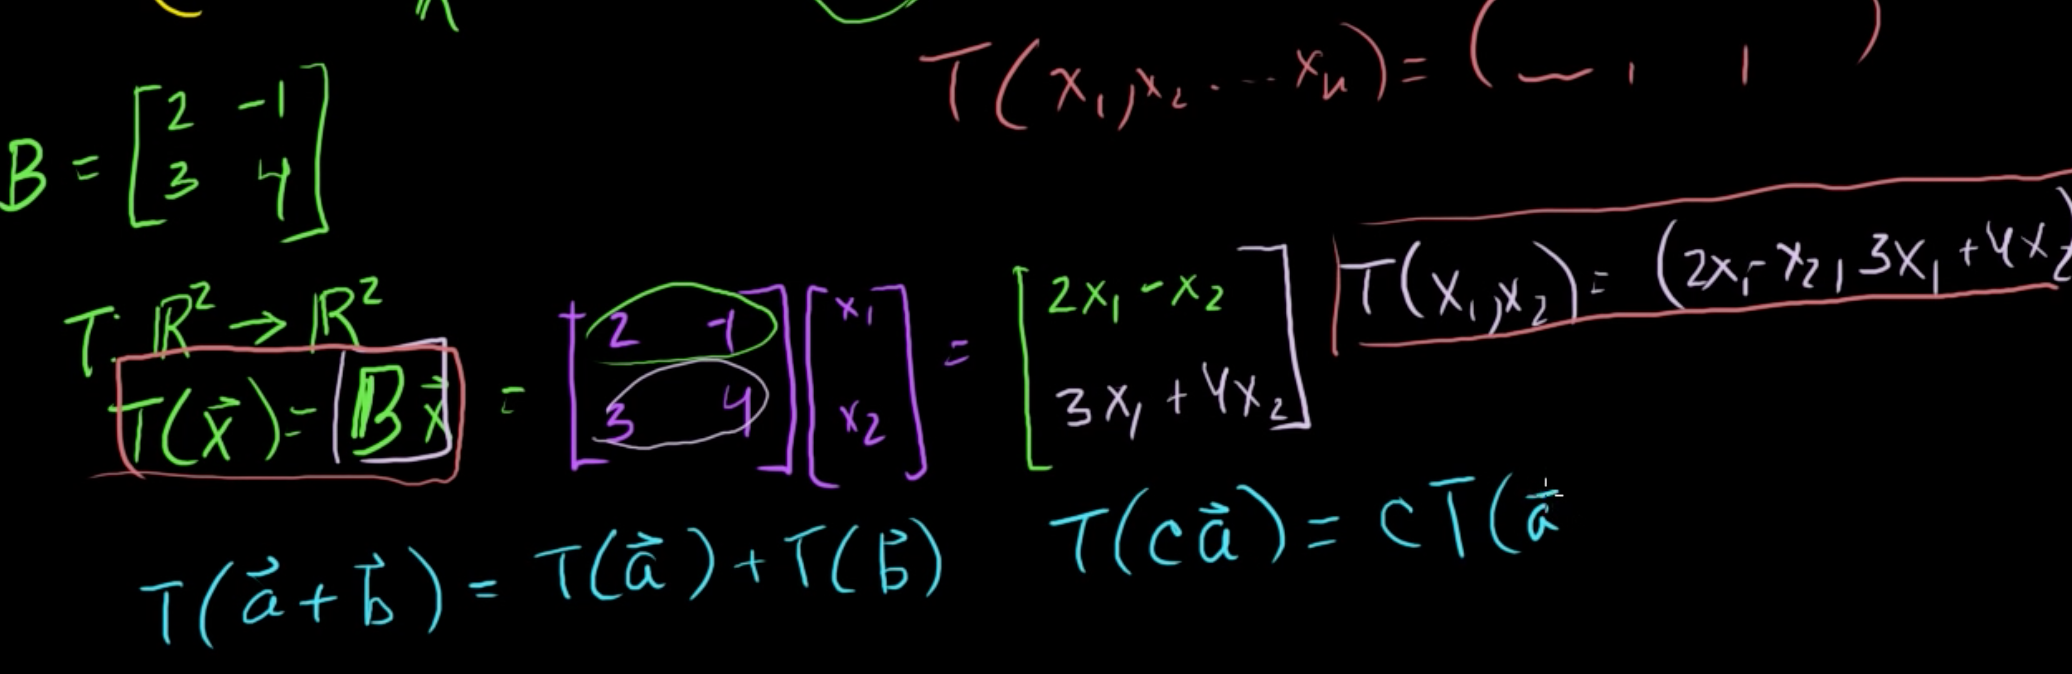 T(x₁, x₂ . ... xₙ) = ( _ , , )
B = [2 -1
3 4]
T: ℝ² → ℝ²
T(x₁, x₂) = (2x₁ - x₂, 3x₁ + 4x₂)
T(x⃗) = Bx⃗ = [2 -1; 3 4] [x₁; x₂] = [2x₁ - x₂; 3x₁ + 4x₂]
T(a⃗ + b⃗) = T(a⃗) + T(b⃗)
T(ca⃗) = cT(a⃗